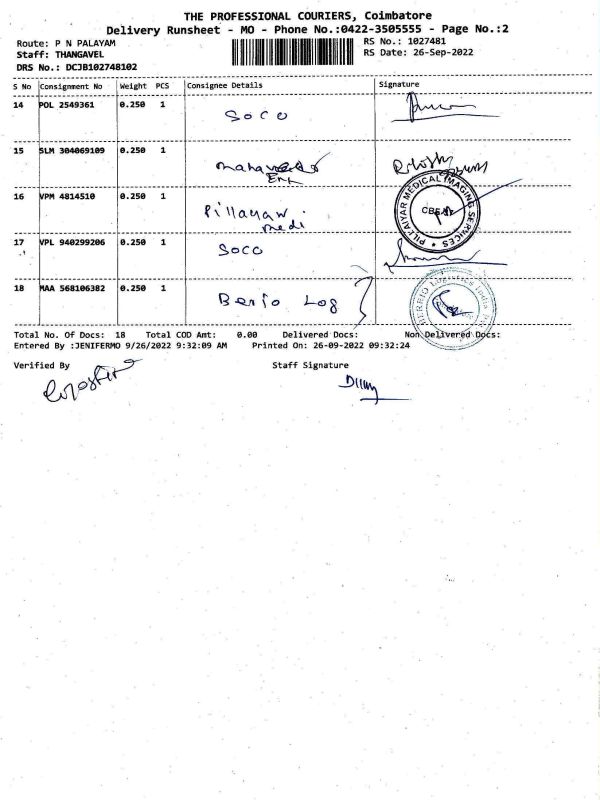 THE PROFESSIONAL COURIERS, Coimbatore
Delivery Runsheet - MO - Phone No.:0422-3505555 - Page No.:2
Route: P N PALAYAM
Staff: THANGAVEL
DRS No.: DCJB102748102
RS No.: 1027481
RS Date: 26-Sep-2022
S No Consignment No Weight PCS Consignee Details Signature
14 POL 2549361 0.250 1 SOCO
15 SLM 304069109 0.250 1
16 VPM 4814510 0.250 1 Pillayaar
medi
PILLAIYAR MEDICAL IMAGING SERVICES
CBE
17 VPL 940299206 0.250 1 SOCO
18 MAA 568106382 0.250 1 Log
Logistics India
Total No. Of Docs: 18 Total COD Amt: 0.00 Delivered Docs: Non Delivered Docs:
Entered By :JENIFERMO 9/26/2022 9:32:09 AM Printed On: 26-09-2022 09:32:24
Verified By Staff Signature